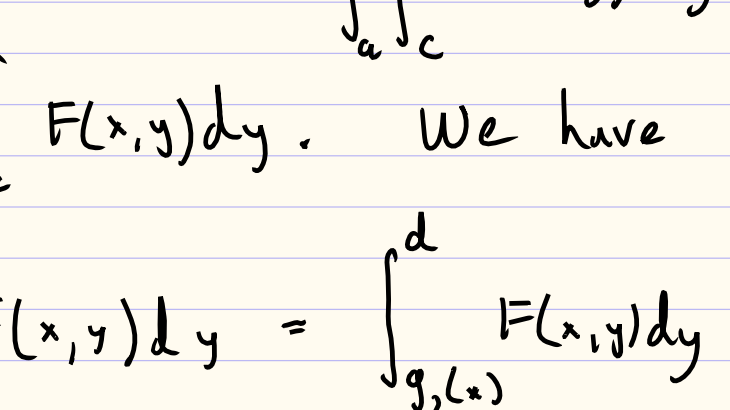 ∫_a ∫_c
F(x,y)dy. We have
(x,y)dy = ∫_{g₁(x)}^{d} F(x,y)dy